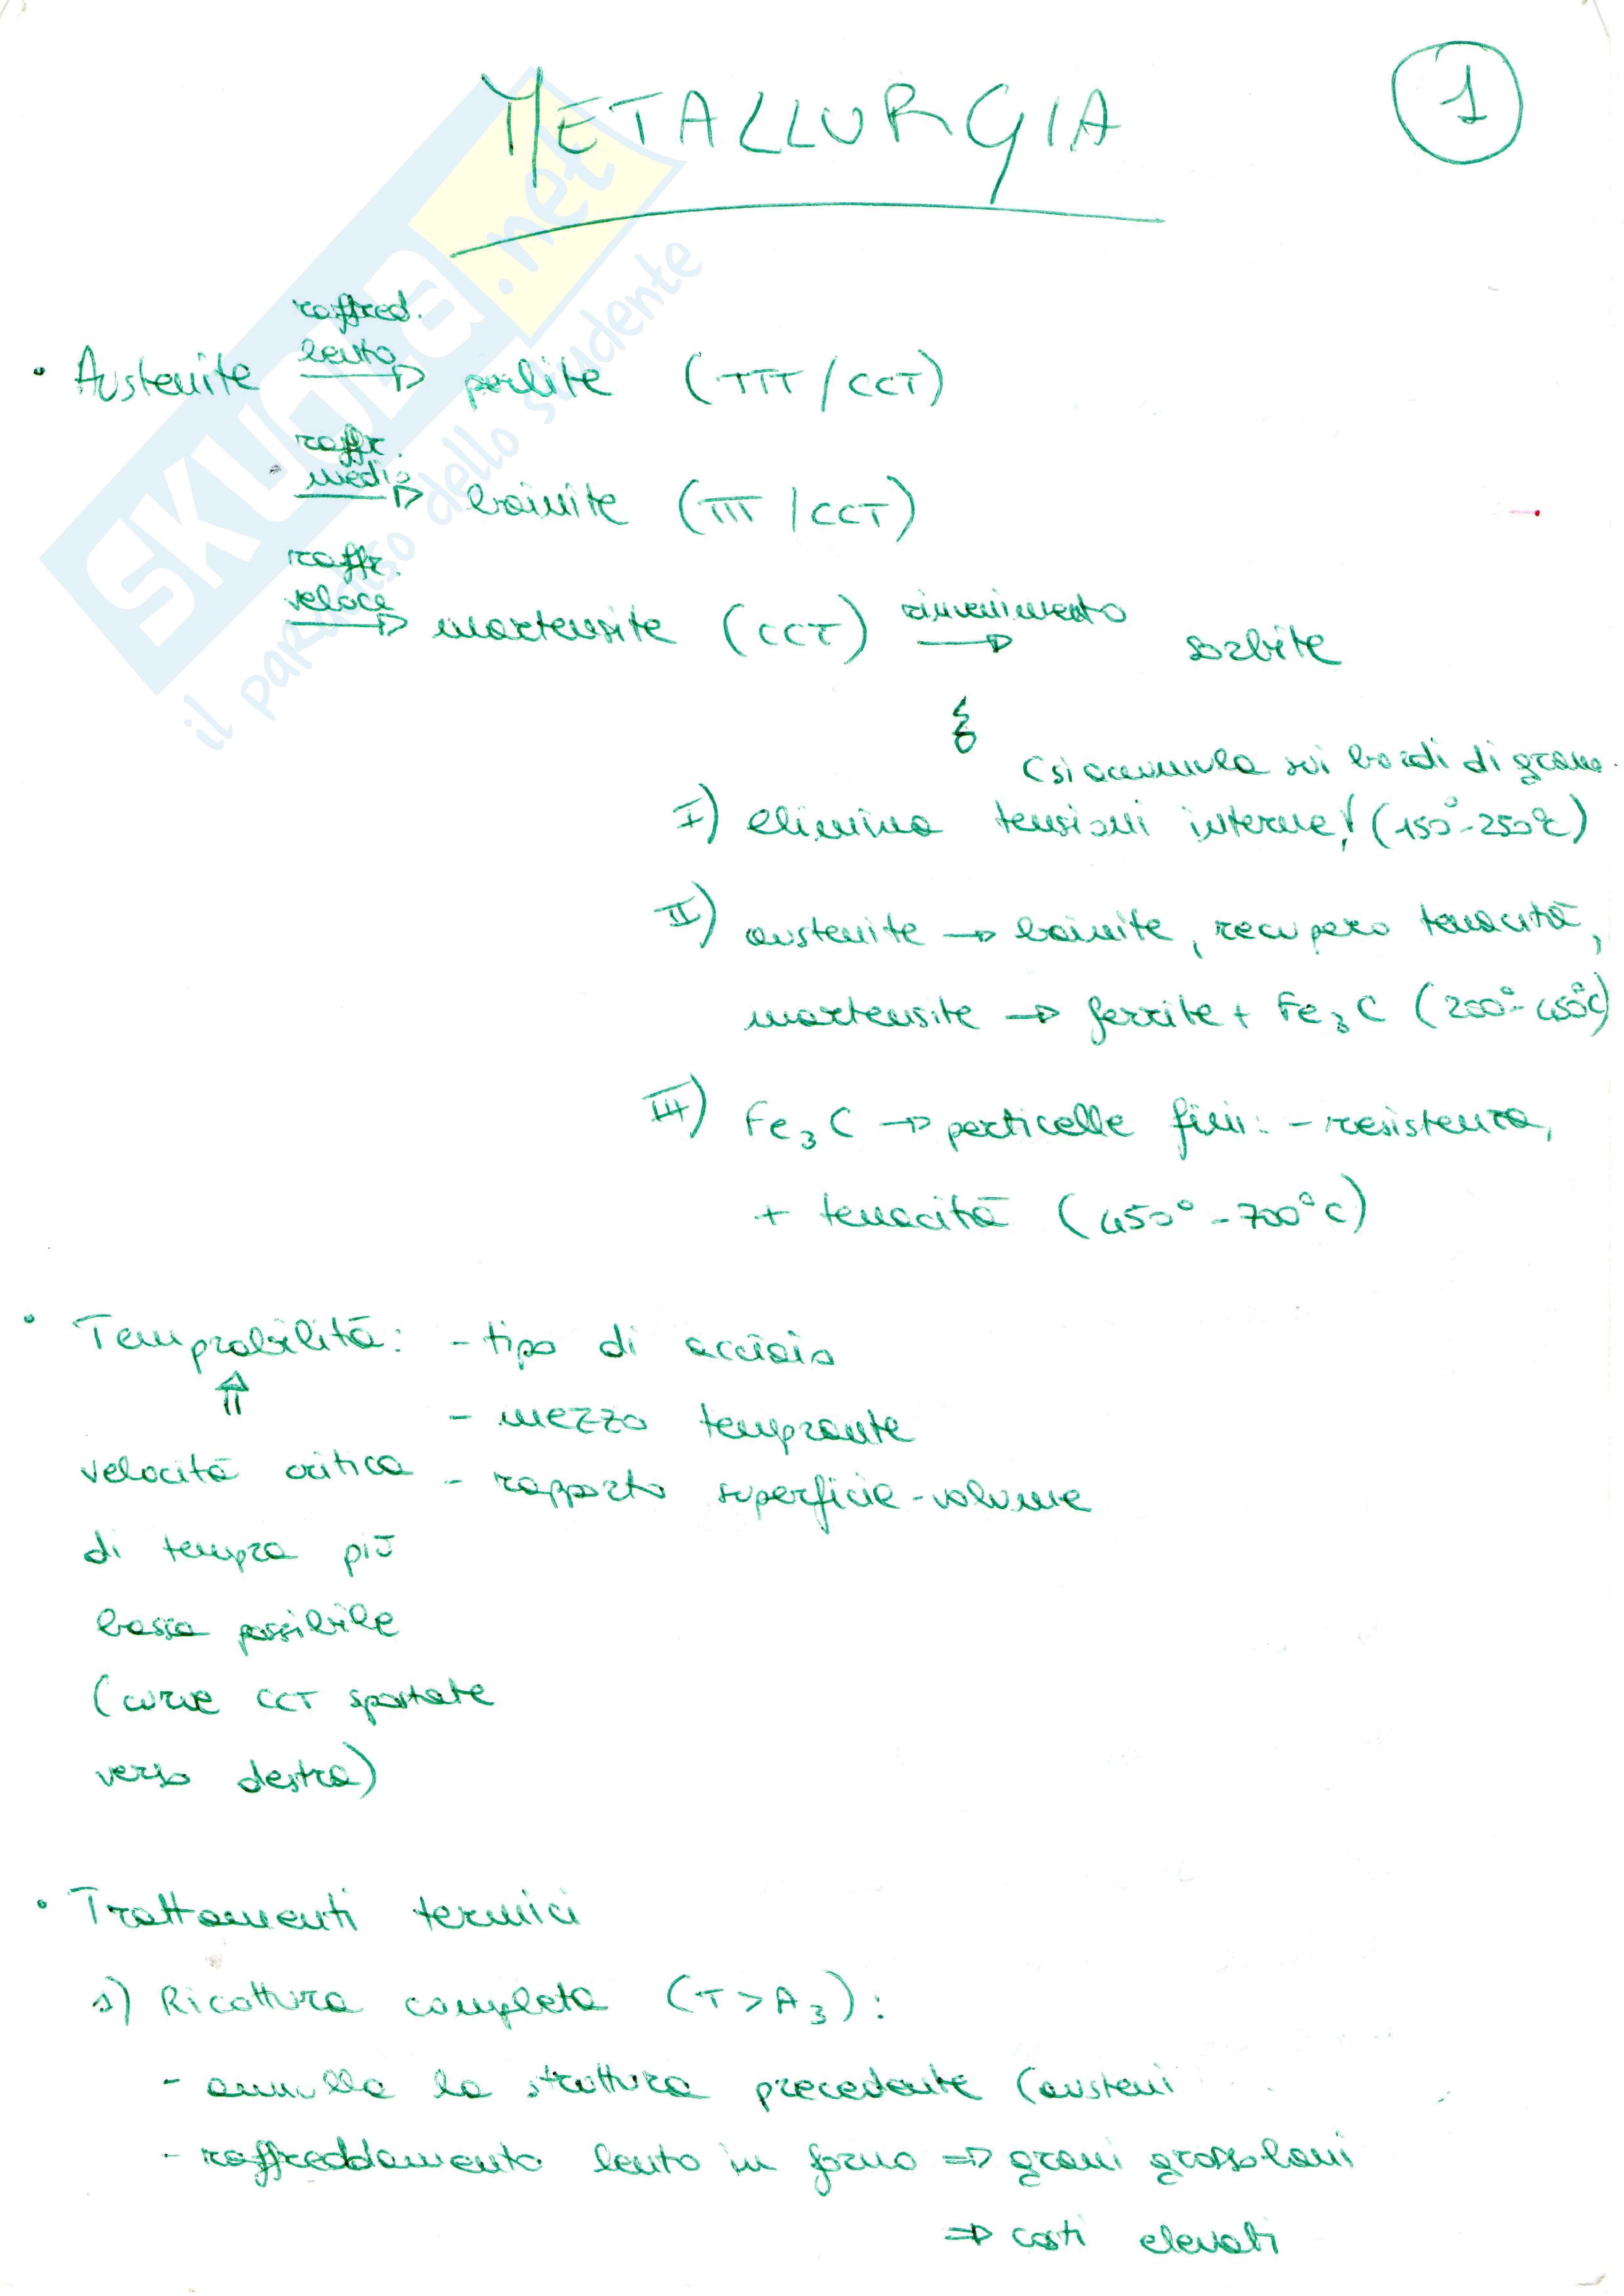 METALLURGIA
1
raffred.
lento
• Austenite → perlite (TTT / CCT)
raffr.
medio
→ bainite (TTT / CCT)
raffr.
veloce
→ martensite (CCT) rinvenimento → sorbite
(si accumula sui bordi di grano
I) elimina tensioni interne! (150°-250°C)
II) austenite → bainite, recupero tenacità,
martensite → ferrite + Fe3C (200°-450°C)
III) Fe3C → particelle fini: - resistenza,
+ tenacità (450° - 700°C)
• Temprabilità: - tipo di acciaio
⇑ - mezzo temprante
velocità critica - rapporto superficie-volume
di tempra più
bassa possibile
(curve CCT spostate
verso destra)
• Trattamenti termici
1) Ricottura completa (T > A3):
- annulla la struttura precedente (austeni
- raffreddamento lento in forno ⇒ grani grossolani
⇒ costi elevati
SKUOLA.net
il paradiso dello studente